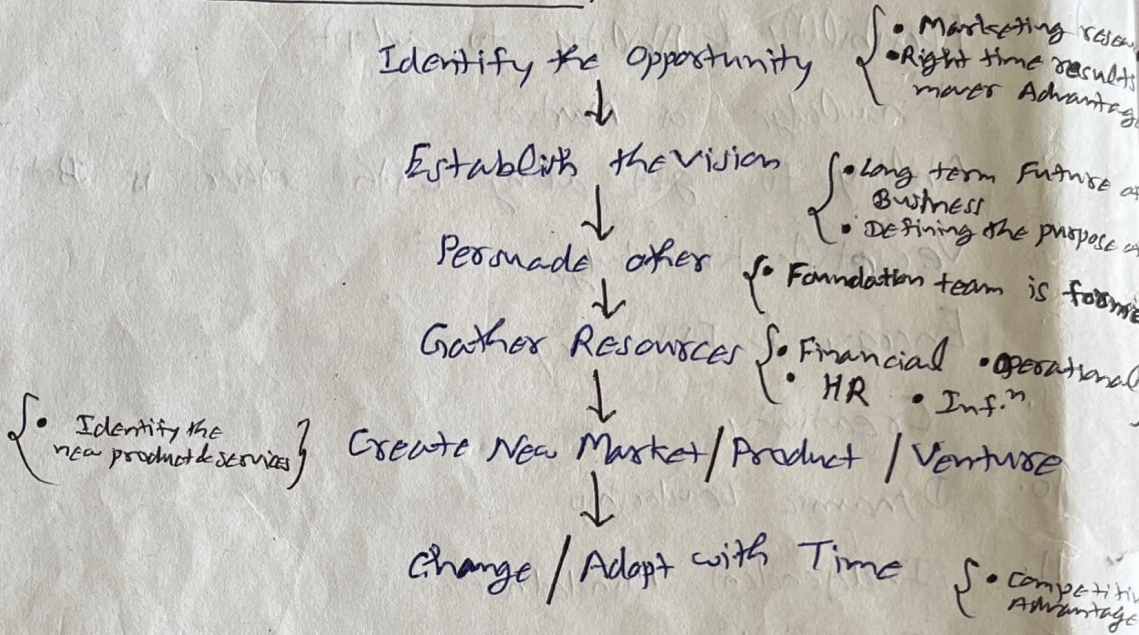 Identify the Opportunity
• Marketing
• Right time results
mover
↓
Establish the vision
• Long term Future
Business
• Defining the purpose
↓
Persuade other
• Foundation team is
↓
Gather Resources
• Financial • operational
• HR • Inf.n
↓
• Identify the
new product & services
Create New Market/Product/Venture
↓
Change/Adapt with Time
• Competitiv
Advantage